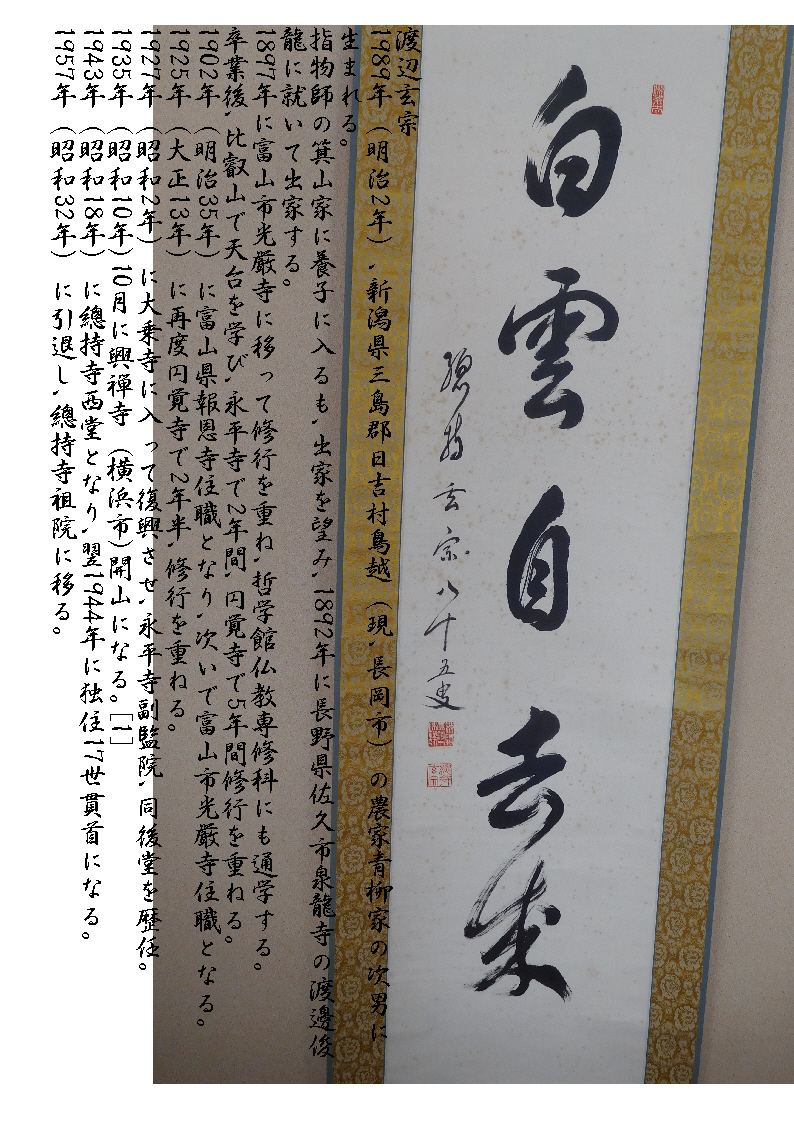 白雲自去来
總持玄宗八十五叟
渡辺玄宗
1989年（明治2年）、新潟県三島郡日吉村鳥越（現、長岡市）の農家青柳家の次男に
生まれる。
指物師の箕山家に養子に入るも、出家を望み、1892年に長野県佐久市泉龍寺の渡邊俊
龍に就いて出家する。
1897年に富山市光厳寺に移って修行を重ね、哲学館仏教専修科にも通学する。
卒業後、比叡山で天台を学び、永平寺で2年間、円覚寺で5年間修行を重ねる。
1902年（明治35年）に富山県報恩寺住職となり、次いで富山市光厳寺住職となる。
1925年（大正13年）に再度円覚寺で2年半、修行を重ねる。
1927年（昭和2年）に大乗寺に入って復興させ、永平寺副監院、同後堂を歴任。
1935年（昭和10年）10月に興禅寺（横浜市）開山になる。[1]
1943年（昭和18年）に總持寺西堂となり、翌1944年に独住17世貫首になる。
1957年（昭和32年）に引退し、總持寺祖院に移る。